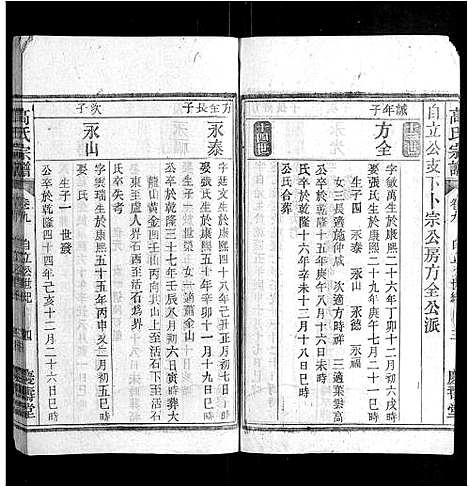 高氏宗譜
自立公支下卜宗公房方全公派
十三世
誠年子
方全
字敬萬生於康熙二十六年丁卯十二月初六戌時
娶張氏生於康熙二十九年庚午七月
生子四 永泰 永山 永德 永福
女三長適施仲成 次適方時祥 三適葉雲高
公卒於乾隆十五年庚午八月十六日未時
氏卒於乾隆十三年戊辰十二月十八日
公氏合葬
慶善堂
十四世
方全長子
永泰
字廷文生於康熙四十八年己丑
娶
生子二 世榮 世
女一適蕭山
公卒於乾隆三十七年壬辰八月初六日寅時葬大
龍山黃金園壬山丙向其山上至活石下至活石
東至盧人界西至活石為界
氏卒失考
次子
永山
字雲瑞生於康熙五十五年丙申又三月初五日
娶氏
生子一 世發
公卒於乾隆四十四年己亥十二月二十六日
高氏宗譜
卷九
自立公世紀
慶善堂